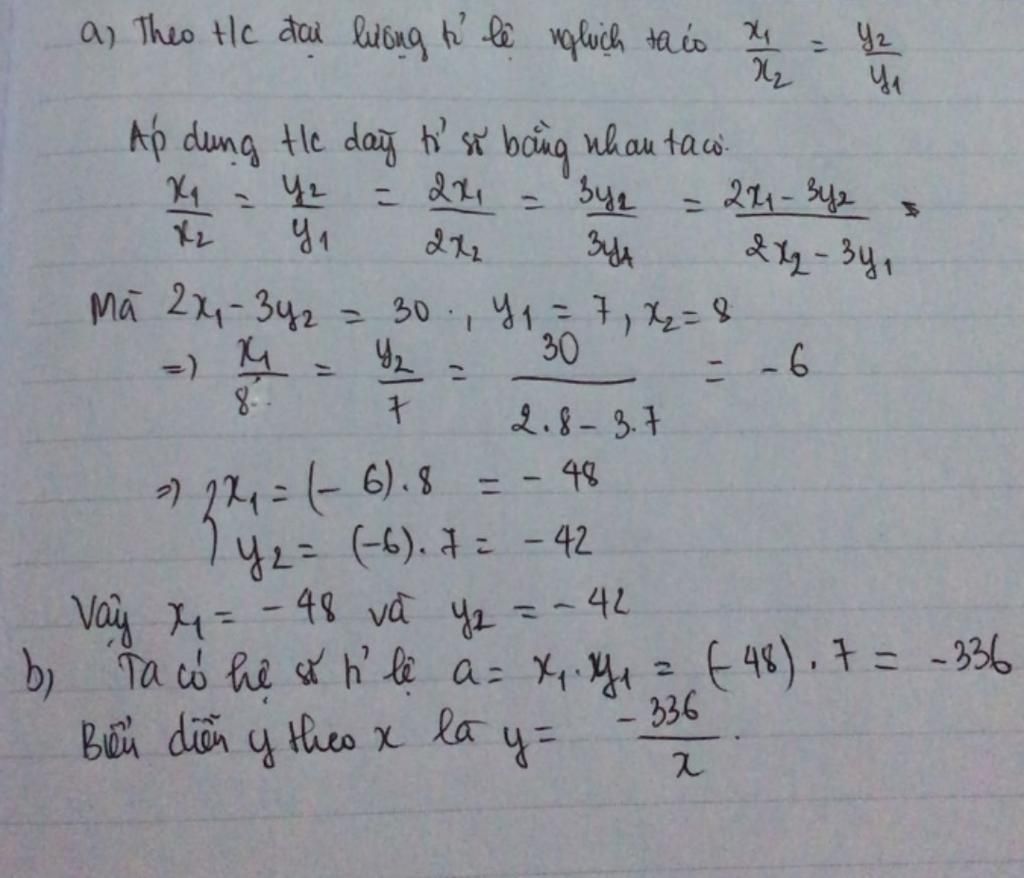 a) Theo t/c đại lượng tỉ lệ nghịch ta có x₁/x₂ = y₂/y₁
Áp dụng t/c dãy tỉ số bằng nhau ta có.
x₁/x₂ = y₂/y₁ = 2x₁/2x₂ = 3y₂/3y₁ = (2x₁ - 3y₂)/(2x₂ - 3y₁)
Mà 2x₁ - 3y₂ = 30, y₁ = 7, x₂ = 8
=> x₁/8 = y₂/7 = 30/(2.8 - 3.7) = -6
=> { x₁ = (-6).8 = -48
y₂ = (-6).7 = -42
Vậy x₁ = -48 và y₂ = -42
b) Ta có hệ số tỉ lệ a = x₁.y₁ = (-48).7 = -336
Biểu diễn y theo x là y = -336/x.